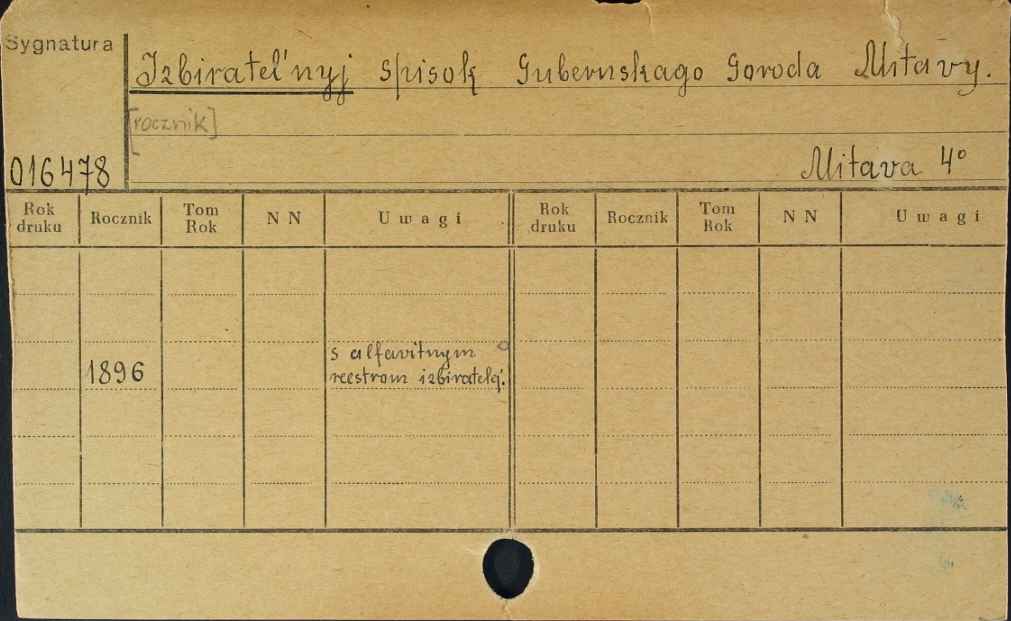 Sygnatura
Izbiratel'nyj spisok Gubernskago Goroda Mitavy.
[rocznik]
016478
Mitava 4°
Rok druku Rocznik Tom Rok N N Uwagi Rok druku Rocznik Tom Rok N N Uwagi
s alfavitnym
1896 reestrom izbiratelej.